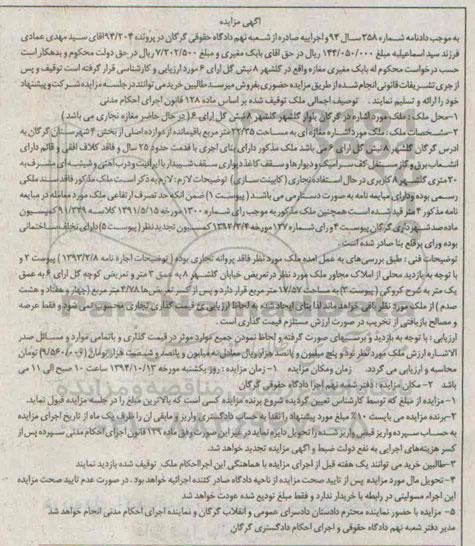 آگهی مزایده
به موجب دادنامه شماره ۳۵۸ سال ۹۴ و اجراییه صادره از شعبه نهم دادگاه حقوقی گرگان در پرونده ۹۴/۲۰۴ آقای سید مهدی عمادی
فرزند سید اسماعیل به مبلغ ۱۴۴/۰۵۰/۰۰۰ ریال در حق آقای بابک مغیری و مبلغ ۷/۲۰۲/۵۰۰ ریال در حق دولت محکوم و بدهکار است
حسب درخواست محکوم له بابک مغیری مغازه واقع در گلشهر ۸ نبش گل ارای ۶ مورد ارزیابی و کارشناسی قرار گرفته است توقیف و پس
از جری تشریفات قانونی انجام شده از طریق مزایده حضوری بفروش میرسد طالبین خرید می توانند در جلسه مزایده شرکت و پیشنهاد
خود را ارائه و تسلیم نمایند . توصیف اجمالی ملک توقیف شده بر اساس ماده ۱۲۸ قانون اجرای احکام مدنی
۱-محل ملک : ملک مورد اشاره در گرگان بلوار گلشهر گلشهر ۸ نبش گل ارای ۶ ( در حال حاضر مغازه نجاری می باشد )
۲-مشخصات ملک : ملک مورد اشاره مغازه ای به مساحت ۲۲/۳۵ متر مربع باقیمانده از دوازده اصلی از بخش ۴ شهرستان گرگان به
ادرس گرگان گلشهر ۸ نبش گل ارای ۶ می باشد ملک مذکور دارای بنای اجری با قدمت حدود ۲۵ سال و فاقد کلاف افقی و قائم دارای
انشعاب برق و گاز مستقل کف سرامیک و دیوارها و سقف کاغذ دیواری سقف شیبدار با ایرانیت و درب آهنی و شیشه ای مشرف به
۲۰ متری گلشهر ۸ کاربری در حال استفاده تجاری ( کابینت سازی ) توضیحات لازم : لازم به ذکر است ملک مذکور فاقد سند ملکی
رسمی بوده و دارای مبایعه نامه به صورت دستارمی می باشد ( پیوست ۱ ) ضمن انکه حد تصرف ارتفاعی ملک مورد معامله در مبایعه
نامه مذکور ۳ متر قید شده است همچنین ملک مذکور به موجب رای شماره ۱۳۰۰ مورخه ۱۳۹۱/۵/۱۵ کلاسه ۹۱/۳۳۹ کمیسیون
ماده صد شهرداری گرگان پیوست ۴ و رای شماره ۱۲۷ مورخه ۱۳۹۴/۳/۴ کمیسیون تجدید نظر ( پیوست ۵ ) دارای تخلف ساختمانی
بوده و رای بر قلع بنا صادر شده است .
توضیحات فنی : طبق بررسی های به عمل امده ملک مورد نظر فاقد پروانه تجاری بوده ( توضیحات اجاره نامه ۱۳۹۳/۲/۸ ) پیوست ۲ و
با توجه به بازدید محلی از املاک مجاور ملک مورد نظر در تعریض خیابان گلشهر ۸ به عمق ۳ متر و تعریض کوچه گل ارای ۶ به عمق
یک متر به شرح کروکی ( پیوست ۳ ) به مساحت ۱۷/۵۷ متر مربع قرار دارد و پس از کسر تعریض ها ۴/۷۸ متر مربع ( چهار و هفتاد و هشت
صدم ) از ملک مورد نظر باقی خواهد ماند لذا بنای ایجاد شده به لحاظ ارزیابی ی قیمت گذاری تجاری محسوب نمی شود و فقط عرصه
و مصالح بازیافتی از تخریب در صورت ارزش مستلزم قیمت گذاری است .
ارزیابی : با توجه به بازدید و پرسشهای صورت گرفته و لحاظ نمودن جمیع موارد موثر در قیمت گذاری و باتمامی موارد و مسائل صدر
الاشاره ارزش ملک مورد نظر نود و پنج میلیون و پانصد هزار ریال معادل نه میلیون و پانصد و شصت هزار تومان ( ۹/۵۶۰/۰۰۰ ) تومان
محاسبه و ارزیابی می گردد. زمان و مکان مزایده ۱- زمان مزایده : روز یکشنبه مورخه ۱۳۹۴/۱۰/۱۳ ساعت ۱۰ صبح الی ۱۱ می
باشد ۲-مکان مزایده : دفتر شعبه نهم اجرا دادگاه حقوقی گرگان
۱-مزایده از مبلغ که توسط کارشناس تعیین گردیده شروع برنده مزایده کسی است که بالاترین مبلغ را در جلسه مزایده قبول نماید.
۲-برنده مزایده می بایست ۱۰% مبلغ مورد پیشنهاد را نقدا به حساب دادگستری واریز مابقی ان را ظرف یک ماه از تاریخ اجرای مزایده
به حساب سپرده واریز قبض واریز شده را تحویل دایره نماید در غیر این صورت وفق ماده ۱۲۹ قانون اجرای احکام مدنی سپرده پس از
کسر هزینه های اجرایی به نفع دولت ضبط و آگهی مزایده تجدید خواهد شد.
۳-طالبین خرید می توانند یک هفته قبل از اجرای مزایده با هماهنگی این اجرا احکام ملک توقیف شده بازدید نمایند
۴-تحویل مال مورد مزایده پس از تایید صحت مزایده از ناحیه دادگاه صادر کننده اجرائیه خواهد بود ، در صورت عدم تایید صحت مزایده
این اجراء مسولیتی در رابطه با خریدار ندارد و فقط مبلغ تودیع شده عودت خواهد شد
۵- مزایده با حضور نماینده محترم دادستان دادسرای عمومی و انقلاب گرگان و نماینده اجرای احکام مدنی انجام خواهد شد
مدیر دفتر شعبه نهم دادگاه حقوقی و اجرای احکام دادگستری گرگان